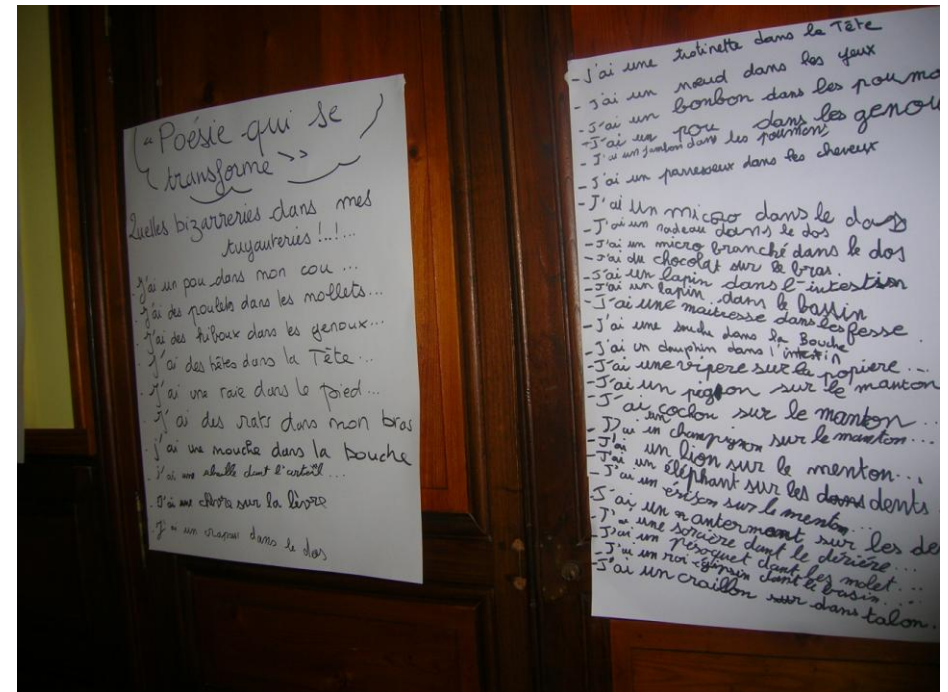 "Poésie qui se
transforme"
Quelles bizarreries dans mes
tuyauteries !..!...
- J'ai un pou dans mon cou ...
- J'ai des poulets dans les mollets...
- J'ai des hiboux dans les genoux...
- J'ai des bêtes dans la Tête...
- J'ai une raie dans le pied...
- J'ai des rats dans mon bras
- J'ai une mouche dans la bouche
- J'ai une abeille dant l'orteil...
- J'ai une chèvre sur la lèvre
- J'ai un crapaud dans le dos
- J'ai une trotinette dans la Tête
- J'ai un nœud dans les yeux
- J'ai un bonbon dans les poumo
- J'ai un pou dans les genou
- J'ai un jambon dans les poumons
- J'ai un paresseux dans les cheveux
- J'ai un micro dans le dos
- J'ai un radeau dans le dos
- J'ai un micro branché dans le dos
- J'ai du chocolat sur le bras.
- J'ai un lapin dans l'intestin
- J'ai un lapin dans le bassin
- J'ai une maitresse dans les fesse.
- J'ai une mouche dans la Bouche
- J'ai un dauphin dans l'intestin
- J'ai une vipere sur la popiere...
- J'ai un pigeon sur le manton
- J'ai un cochon sur le manton...
- J'ai un champignon sur le manton...
- J'ai un lion sur le menton...
- J'ai un éléphant sur les dents
- J'ai un érison sur le menton...
- J'ai un antermont sur les de
- J'ai une sorcière dant le dérière...
- J'ai un pésoquet dant les molet...
- J'ai un roi dant le basin...
- J'ai un craillon dans talon.